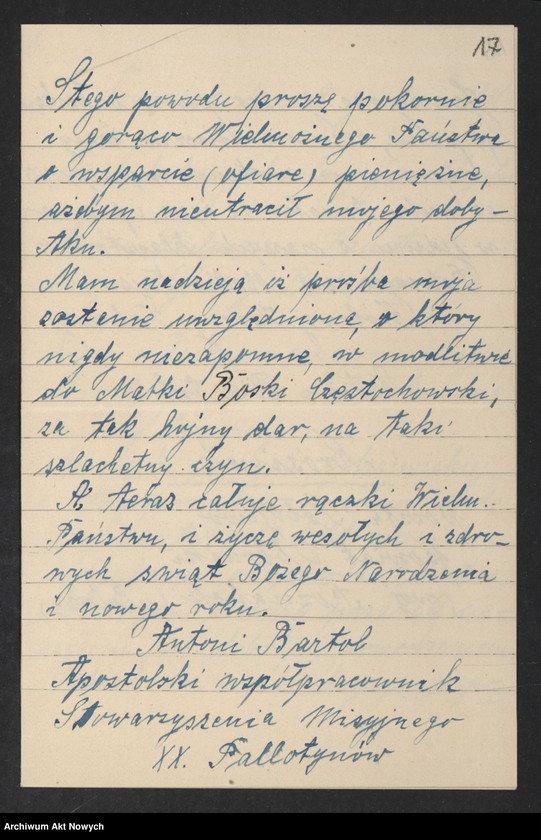 17
Stego powodu proszę pokornie
i gorąco Wielmożnego Państwa
o wsparcie (ofiare) pieniężne,
ażebym nieutracił mojego doby-
tku.
Mam nadzieją iż prośba moja
zostanie uwzględniona, o który
nigdy niezapomne, w modlitwie
do Matki Boski Częstochowski,
za tak hojny dar, na taki
szlachetny czyn.
A teraz całuje rączki Wielm.
Państwu, i życzę wesołych i zdro-
wych swiąt Bożego Narodzenia
i nowego roku.
Antoni Bartol
Apostolski współpracownik
Stowarzyszenia Misyjnego
XX. Pallotynów
Archiwum Akt Nowych